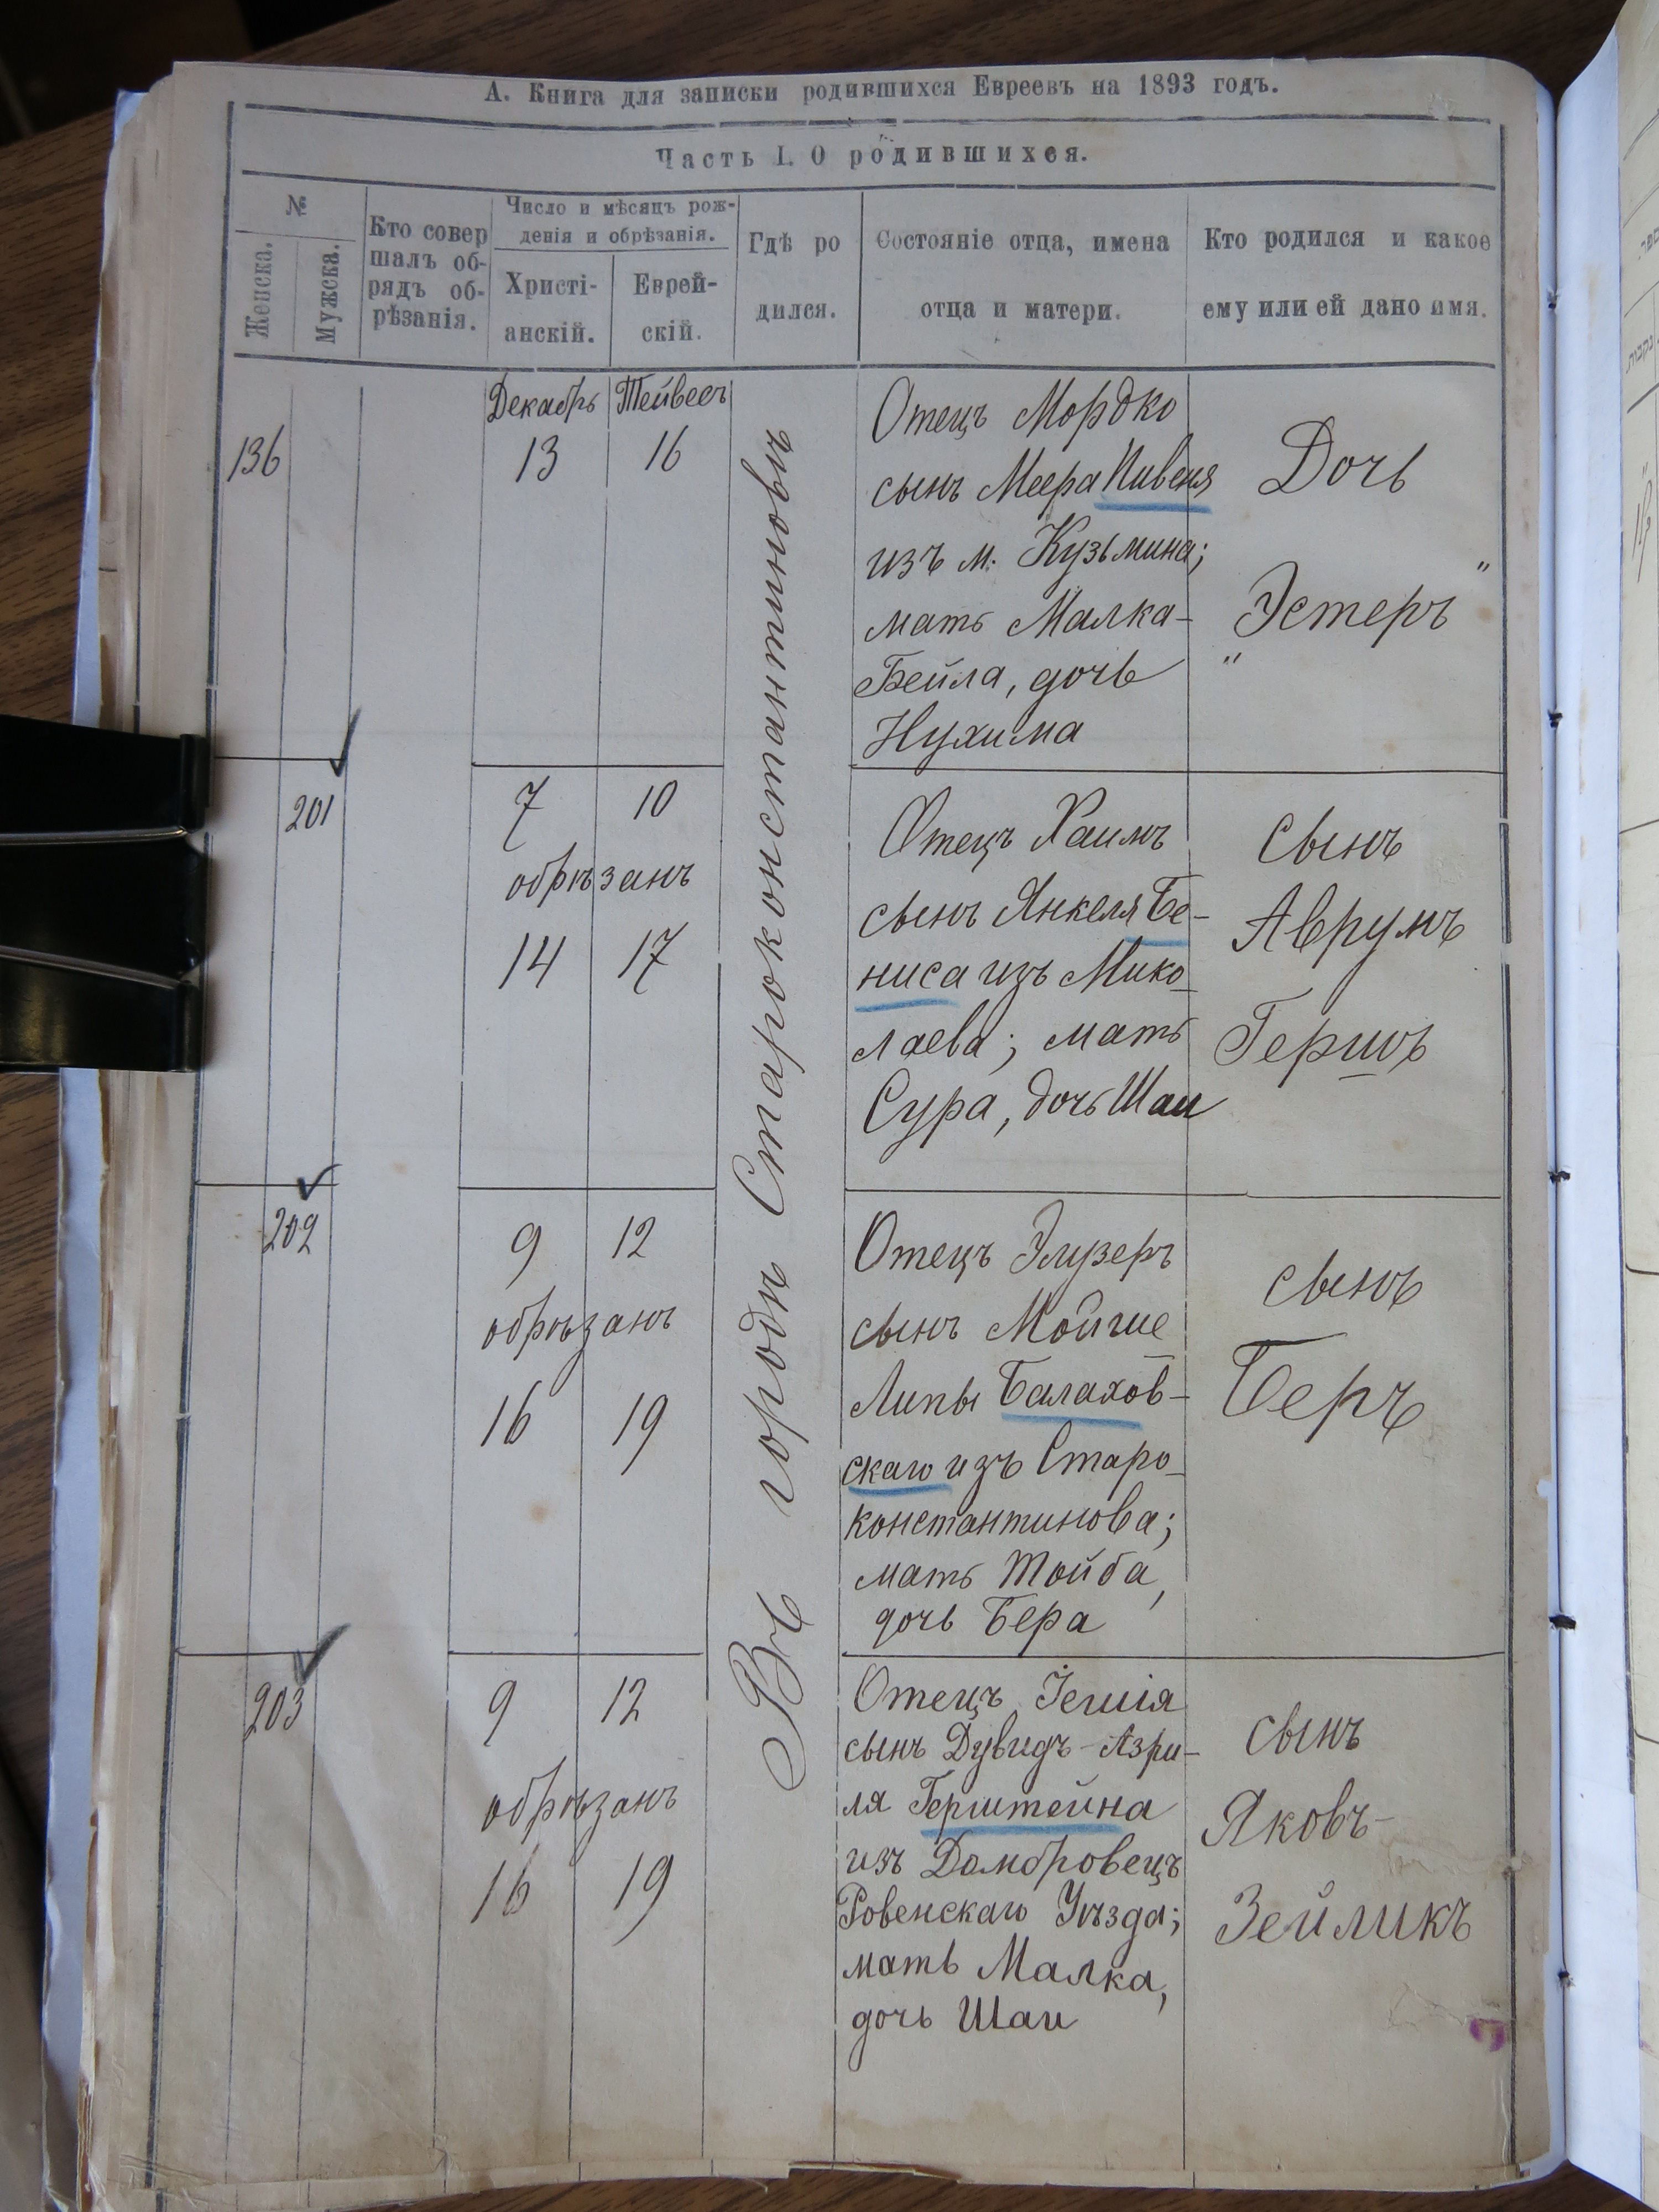 А. Книга для записки родившихся Евреевъ на 1893 годъ.
Часть I. О родившихся.
№
Женска.
Мужска.
Кто совер
шалъ об-
рядъ об-
рѣзанія.
Число и мѣсяцъ рож-
денія и обрѣзанія.
Христі-
анскій.
Еврей-
скій.
Гдѣ ро
дился.
Состояніе отца, имена
отца и матери.
Кто родился и какое
ему или ей дано имя.
Декабрь Тейвесъ
136
13 16
Въ городѣ Староконстантиновѣ
Отецъ Мордко
сынъ Меера Пивеня
изъ м. Кузьмина;
мать Малка-
Бейла, дочь
Нухима
Дочь
Эстеръ "
"
201
7 10
обрѣзанъ
14 17
Отецъ Хаимъ
сынъ Янкеля Бе-
ниса изъ Мико
лаева; мать
Сура, дочь Шаи
Сынъ
Аврумъ
Гершъ
202
9 12
обрѣзанъ
16 19
Отецъ Элузеръ
сынъ Мойше
Липы Балахов-
скаго изъ Старо-
константинова;
мать Тойба,
дочь Бера
сынъ
Беръ
203
9 12
обрѣзанъ
16 19
Отецъ Іешія
сынъ Дувидъ-Азри-
ля Герштейна
изъ Домбровецъ
Ровенскаго Уѣзда;
мать Малка,
дочь Шаи
сынъ
Яковъ-
Зейликъ